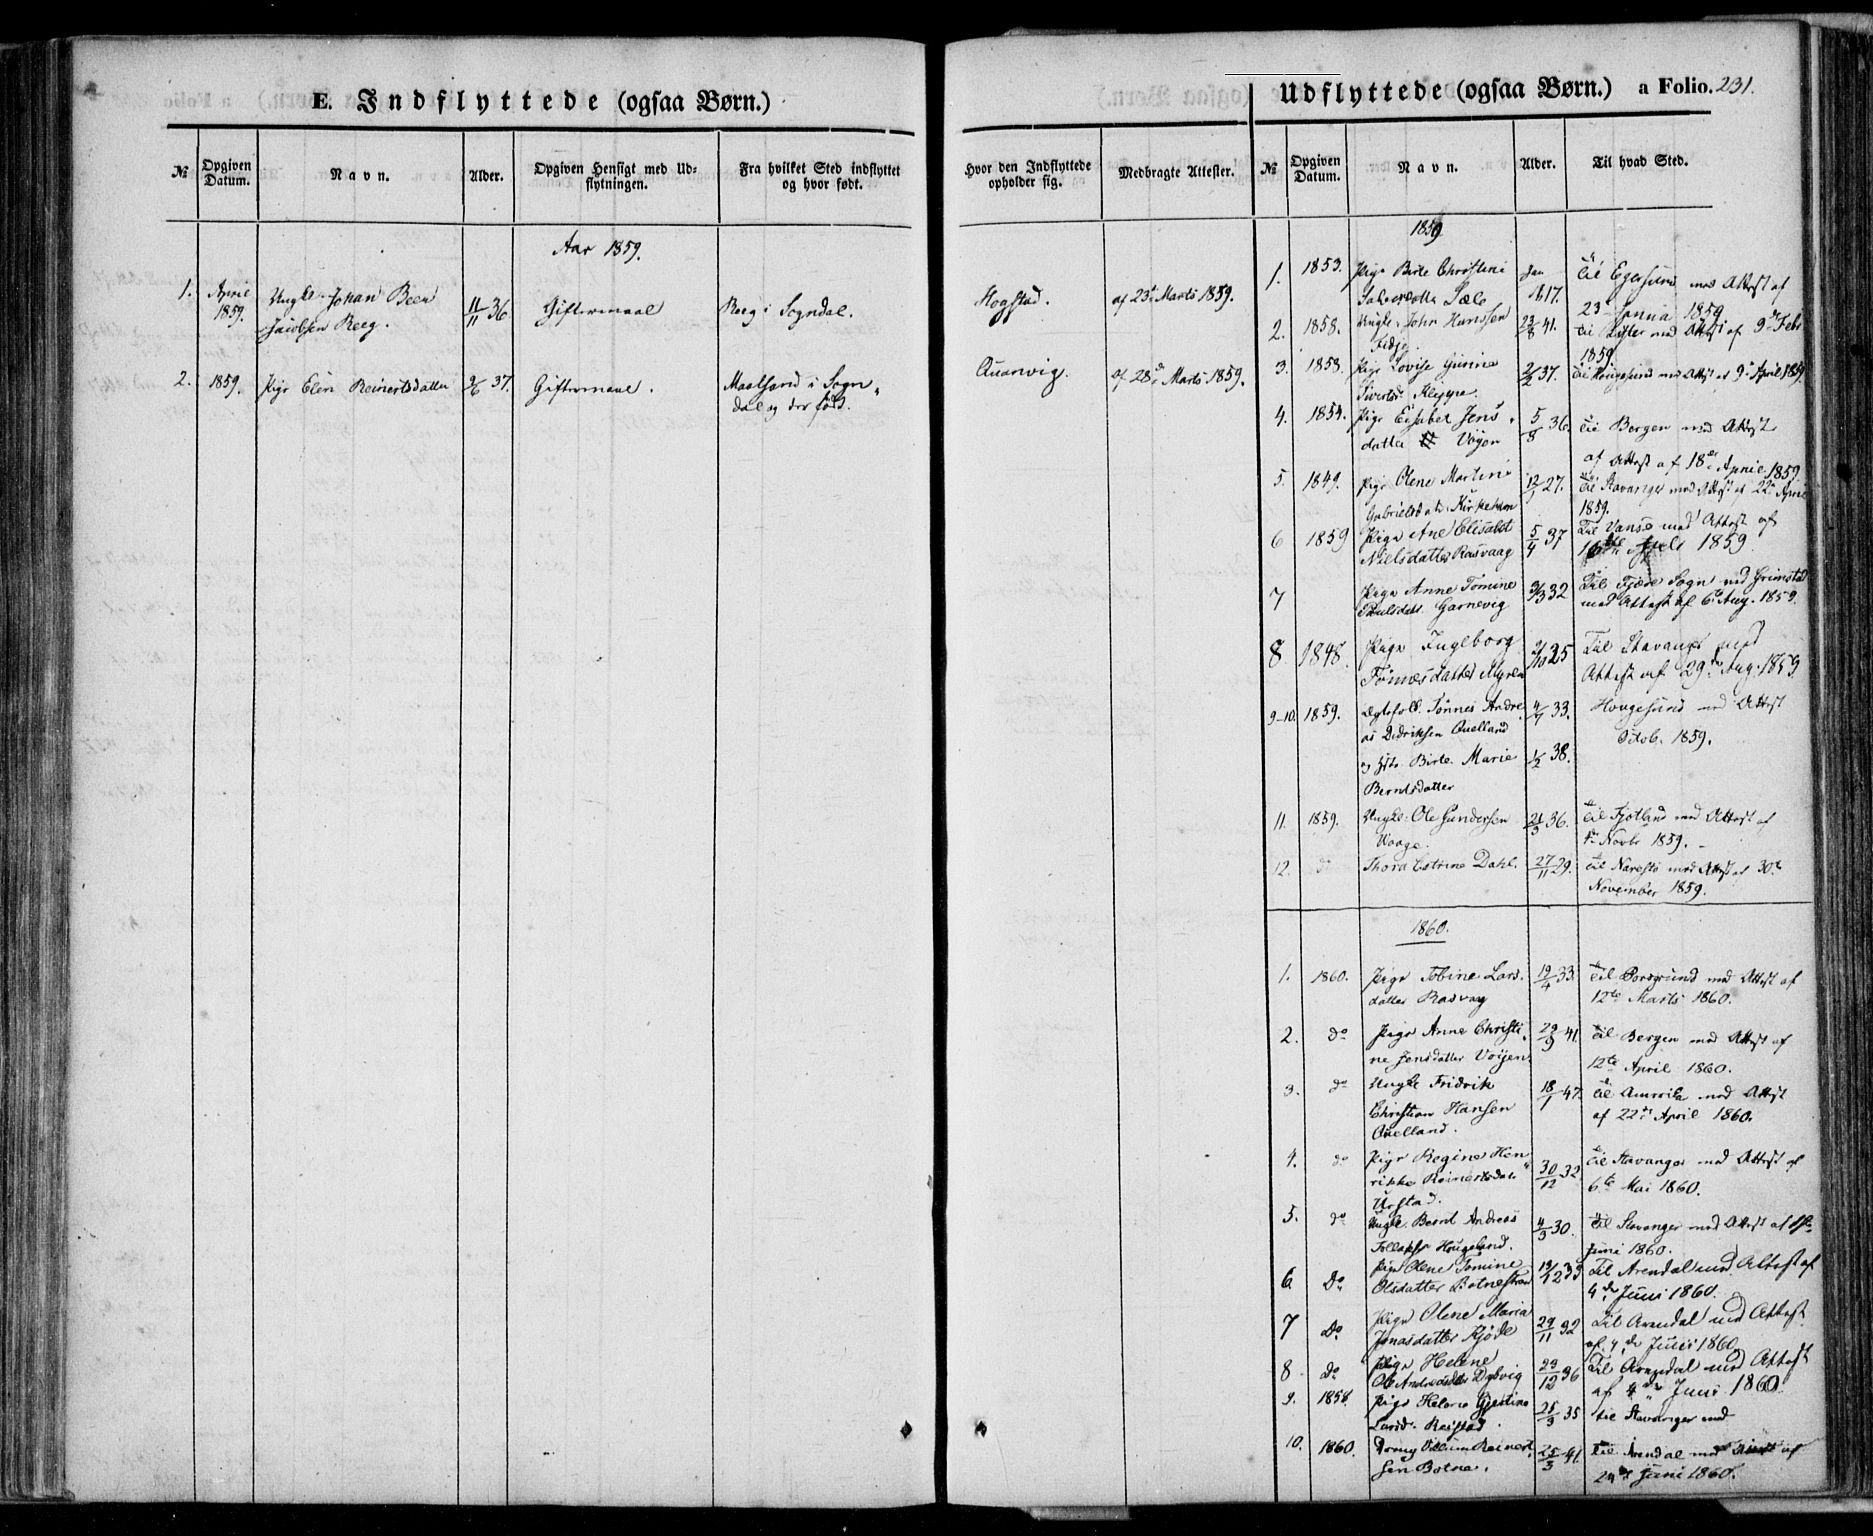 E. Indflyttede (ogsaa Børn.)
№
Opgiven Datum.
Navn.
Alder.
Opgiven Hensigt med Ud-
flytningen.
Fra hvilket Sted indflyttet
og hvor født.
Aar 1859.
1. April 1859. Ungk. Johan Been 11/11 36 Giftermaal Reeg i Sogndal.
Jacobsen Reeg.
2. 1859. Pige Elen Reinertsdatter 37. Giftermaal. Maalsand i Sogn
dal og der født.
Udflyttede (ogsaa Børn.) a Folio. 231.
Hvor den Indflyttede
opholder sig.
Medbragte Attester.
№
Opgiven Datum.
Navn.
Alder.
Til hvad Sted.
Hogstad. af 23d Marts 1859.
Quanvig. af 28d Marts 1859.
1859
1. 1853. Pige Birte Christini 17. Til Egersund med Attest af
Sæle 23d 1859
2. 1858. Ungk. John Hanssen 23/8 41. til med Attest af 9d Febr
Fedje. 1859.
3. 1858. Pige Lovise Gurine 37. til Hougesund med Attest af 9d April 1859
Sivertsd. Kleppe.
4. 1854. Pige Elisabet Jens 5/8 36. til Bergen med Attest
datter Vøyen af Attest af 18de April 1859
5. 1849. Pige Olene Martini 12/1 27. til Stavanger med Attest af 22de April
Gabrielsdatter 1859.
6 1859 Pige Ane Elisabet 5/4 37 Til Vanse med Attest af
Nielsdatter Rasvaag 1859
7 Pige Anne Tomine 32 Til Fjære Sogn ved Grimstad
Garnevig med Attest af 6te Aug. 1859.
8 1848. Pige Ingleborg 25 Til Stavanger med
Tønnesdatter Myren Attest af 29de Aug. 1859
9-10. 1859. Ægtefolk Tønnes Andre 4/7 33. Hougesund med Attest
as Didriksen Quelland Octob. 1859.
og Birte Marie 1/2 38.
Berntsdatter
11. 1859. Ungk. Ole Gundersen 21/3 36. til Fjotland med Attest af
Vaage. Novbr 1859.
12. do Thora Cetrine Dahl. 27/11 29. til Narestø med Attest af 30te
November 1859.
1860.
1. 1860. Pige Tobine Lars- 19/4 33. til Porsgrund med Attest af
datter Rasvaag 12te Marts 1860.
2. do Pige Anne Christi- 29/9 41. til Bergen med Attest af
ne Jensdatter Vøyen. 12te April 1860.
3. do Ungk. Fridrik 18/1 47. til Amerika med Attest
Christian Hansen af 22de April 1860.
Quelland.
4. do Pige Regine Hen 30/12 32. til Stavanger med Attest af
rikke Reinertsdatter 6te Mai 1860.
Urstad.
5. do Ungk. Bernt Andreas 4/3 30. til Stavanger med Attest af
Tollaksen Hougeland. Juni 1860.
6 Do Pige Olene Tomine 33 Til Arendal med Attest af
Olsdatter Botnestrand 4de Juni 1860.
7 Do Pige Olene Maria 29/11 32 Til Arendal med Attest
Jonasdatter Fjøde af 4de Juni 1860
8 do Pige Helene 29/12 36 Til Arendal med Attest
Dybvig af 4de Juni 1860
9. 1858. Pige Helene Gjestine 25/3 35 til Stavanger med
Larsd. Reistad.
10. 1860. Dreng Villum Reinert 25/3 41. til Arendal med Attest af
sen Botne. 24de Juni 1860.